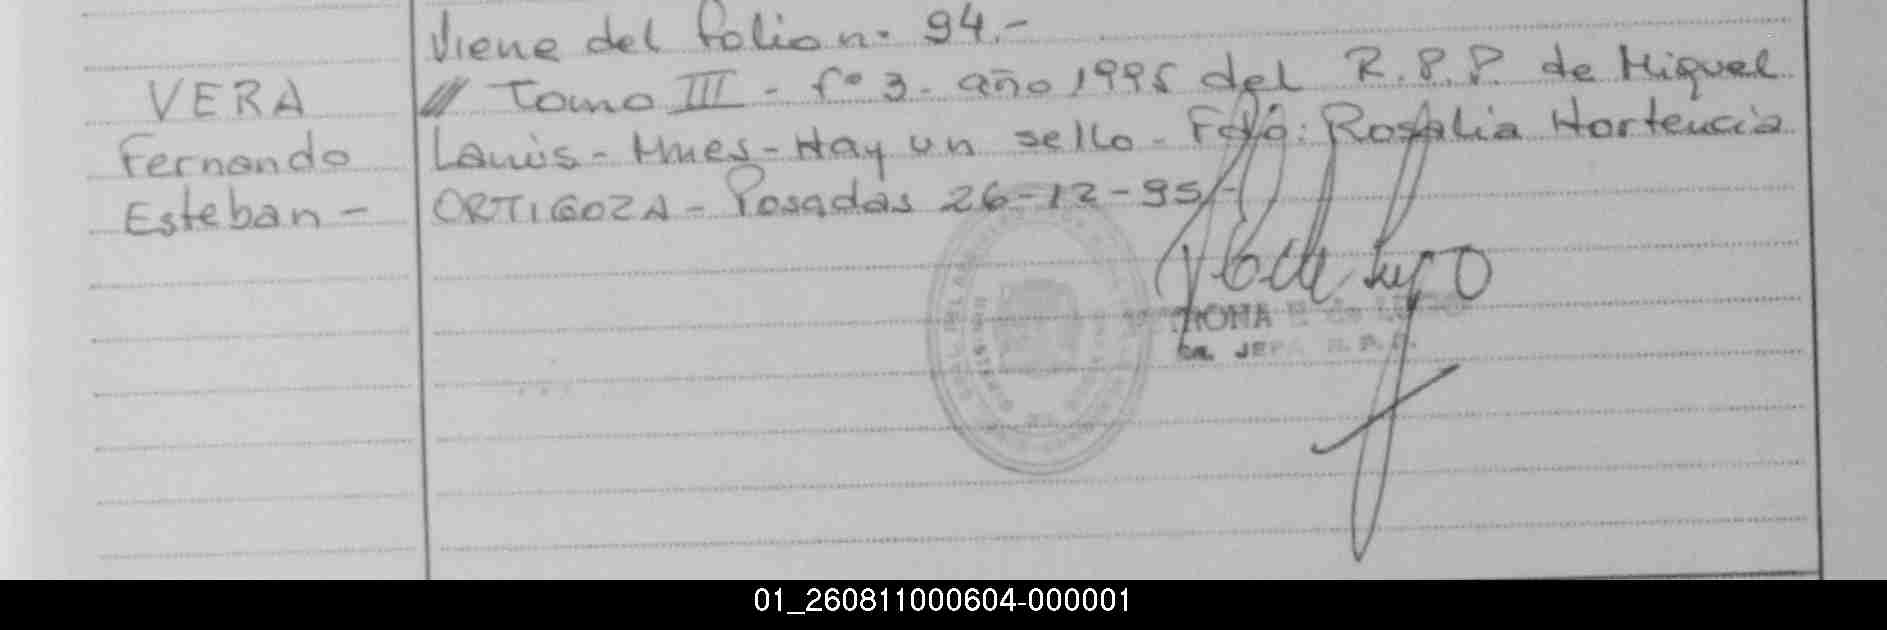 Viene del folio n. 94.-
VERA
/// Tomo III - fº 3 - año 1995 del R.P.P. de Miguel
Fernando
Lanús - Mnes - Hay un sello - Fdo: Rosalia Hortencia
Esteban -
ORTIGOZA - Posadas 26-12-95/-
JEFA R.P.P.
01_260811000604-000001